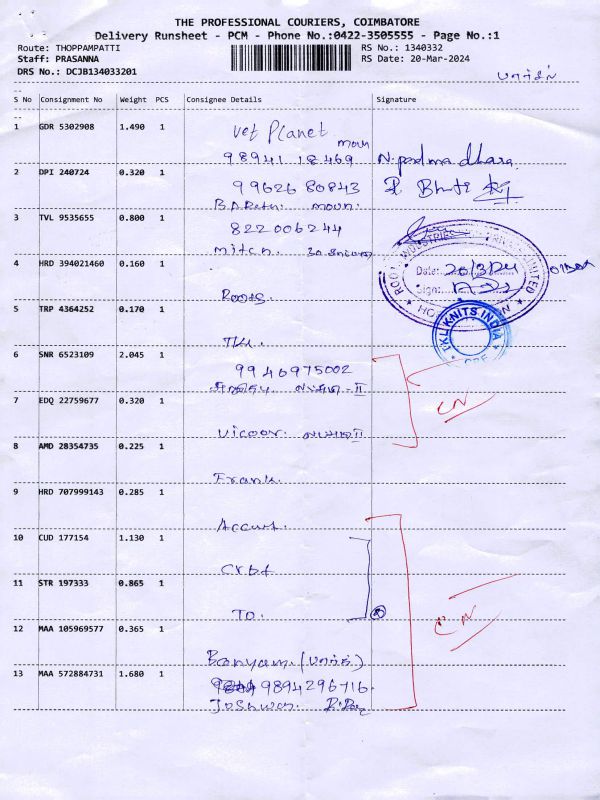 THE PROFESSIONAL COURIERS, COIMBATORE
Delivery Runsheet - PCM - Phone No.:0422-3505555 - Page No.:1
Route: THOPPAMPATTI RS No.: 1340332
Staff: PRASANNA RS Date: 20-Mar-2024
DRS No.: DCJB134033201
S No Consignment No Weight PCS Consignee Details Signature
1 GDR 5302908 1.490 1 Vet Planet
98941 18469 N. padma dhara
2 DPI 240724 0.320 1
99626 80843
3 TVL 9535655 0.800 1
822006244
mitch
4 HRD 394021460 0.160 1 Date: 20/3/24
Sign:
Roots
5 TRP 4364252 0.170 1 TKL KNITS INDIA
TKL.
6 SNR 6523109 2.045 1
9946975002
7 EDQ 22759677 0.320 1
CN
Vicoor.
8 AMD 28354735 0.225 1
Frank.
9 HRD 707999143 0.285 1
Accurt.
10 CUD 177154 1.130 1
11 STR 197333 0.865 1
To.
CN
12 MAA 105969577 0.365 1
Banyam.
13 MAA 572884731 1.680 1
9894296716.
Joshwa.